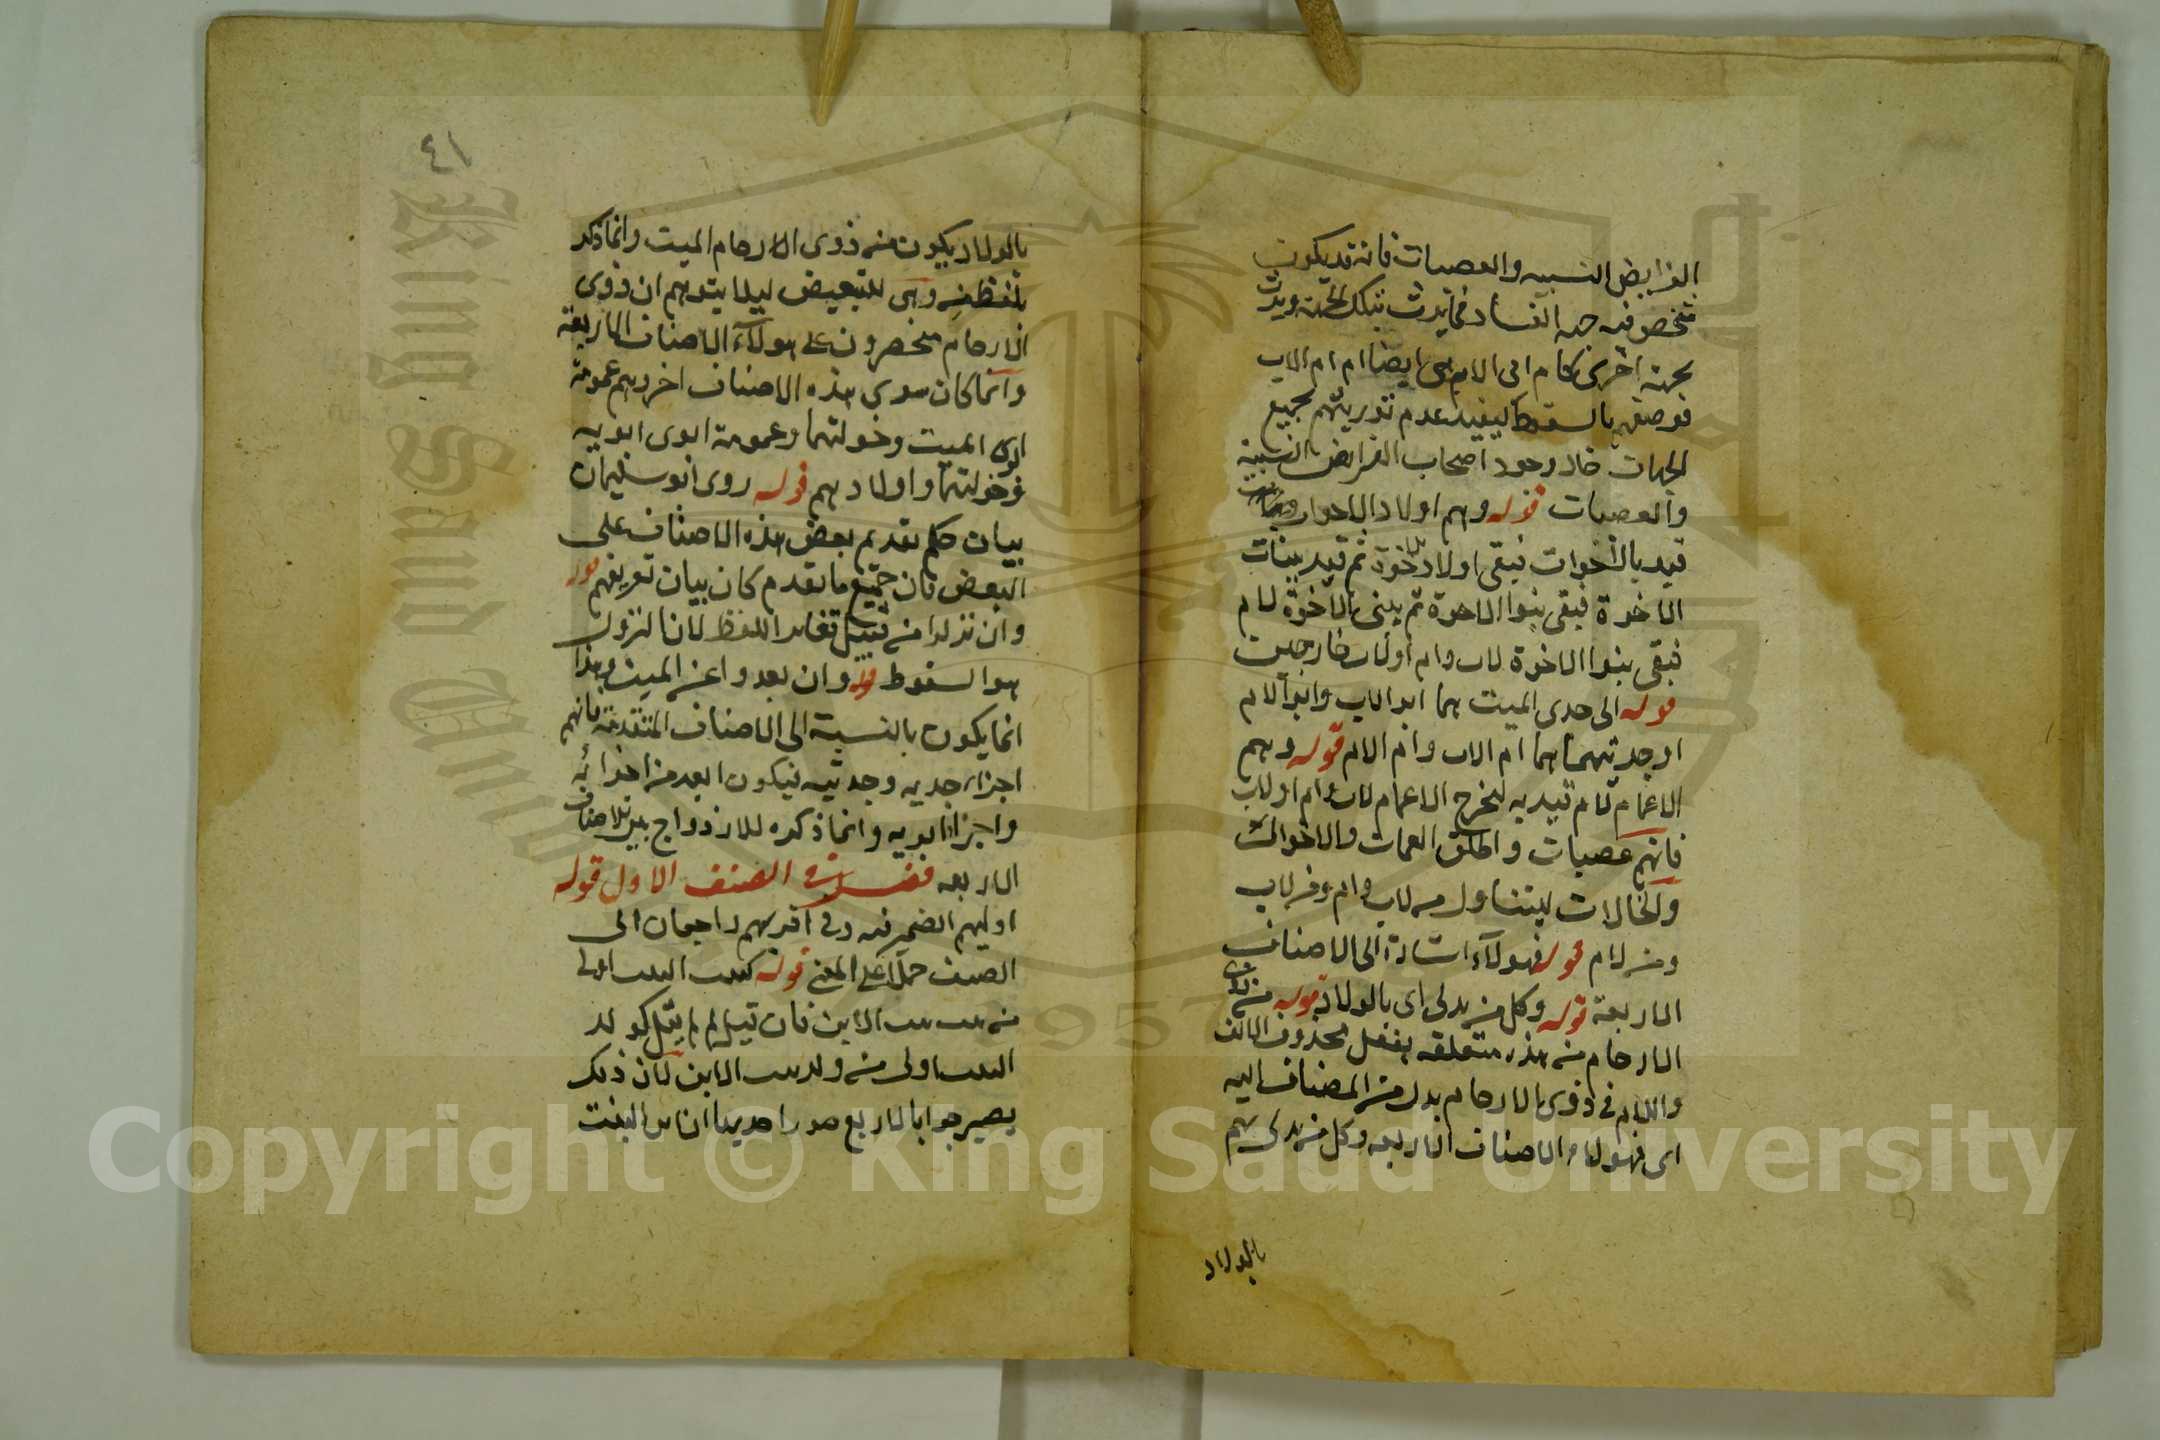 الفرايض النسبيه والعصبات فانه قد يكون
شخص فيه جهه الفساد فما يرث بتلك الجهة ويرث
بجهة اخرى كام ام الام هى ايضا ام ام الاب
فوصفهم بالسقوط ليفيد عدم توريثهم بجميع
الجهات حال وجود اصحاب الفرايض النسبية
والعصبات قوله وهم اولاد الاخوات وبنات
قيد بالأخوات فبقى اولاد الاخوة ثم قيد ببنات
الاخوة فبقى بنوا الاخوة ثم ببنى الاخوة لام
فبقى بنوا الاخوة لاب وام او لاب خارجين
قوله الى جدى الميت هما ابو الاب وابو الام
او جدتيهما هما ام الاب وام الام قوله وهم
الاعمام لام قيد به ليخرج الاعمام لاب وام او لاب
فانهم عصبات واطلق العمات والاخوال
والخالات ليتناول من لاب وام ومن لاب
ومن لام قوله فهولآء اشارة الى الاصناف
الاربعة قوله وكل من يدلى اى بالولاد قوله من ذوى
الارحام من هذه متعلقه بفعل محذوف الالف
واللام فى ذوى الارحام بدل من المضاف اليه
اى فهولاء الاصناف الاربعه وكل من يدلى بهم
بالولاد
٤١
بالولاد يكون من ذوى الارحام الميت وانما ذكر
بلفظ من وهى للتبعيض ليلا يتوهم ان ذوى
الارحام منحصرون على هولآء الاصناف الاربعة
وانما كان سوى هذه الاصناف اخر وهم عمومة
ابوى الميت وخولتهما وعمومة ابوى ابويه
وخولتهما واولادهم قوله روى ابو سليمان
بيان حكم تقديم بعض هذه الاصناف على
البعض فان جميع ما تقدم كان بيان تعريفهم قوله
وان نزلوا من قبيل تغاير اللفظ لان النزول
هو السقوط قوله وان بعدوا عن الميت وهذا
انما يكون بالنسبة الى الاصناف المتقدمة فانهم
اجزاء جديه وجدتيه فيكون ابعد من اجزائه
واجزاء ابويه وانما ذكره للازدواج بين الاصناف
الاربعه فصل فى الصنف الاول قوله
اوليهم الضمير فيه وفى اقربهم راجعان الى
الصنف حملا على المعنى قوله كبنت البنت اولى
من بنت بنت الابن فان قيل لم لم يقل كولد
البنت اولى من ولد بنت الابن لان ذلك
يصير جوابا لاربع صور احديها ان ابن البنت